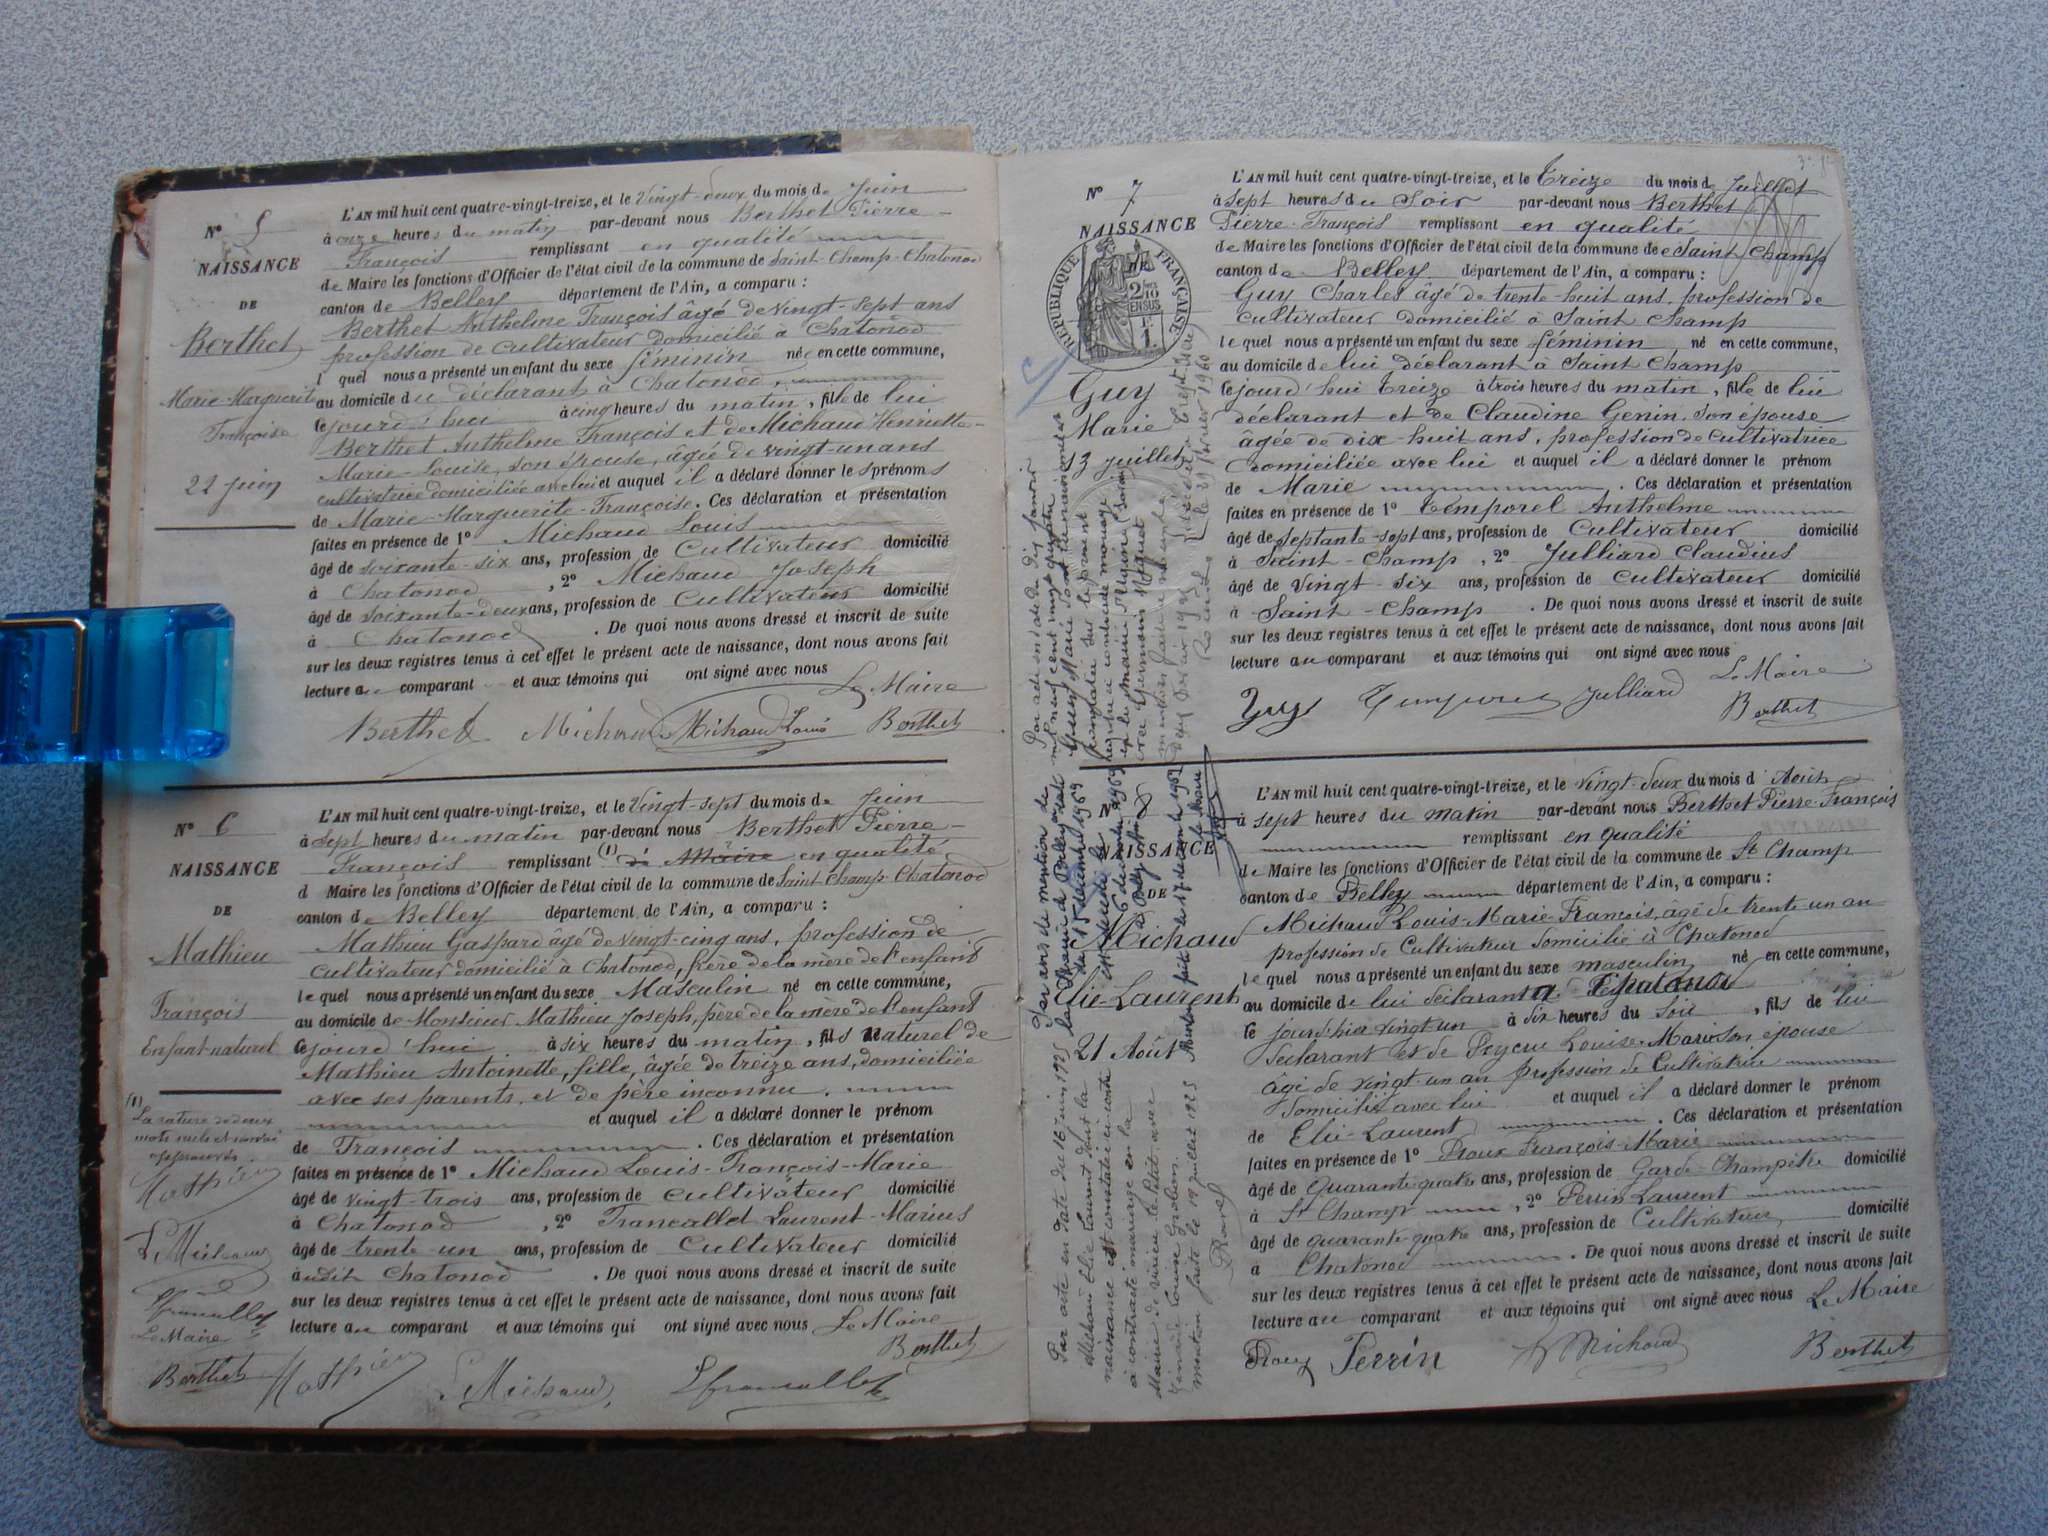 N° 5
NAISSANCE
DE
Berthet
Marie-Marguerite
Françoise
22 juin
L'AN mil huit cent quatre-vingt-treize, et le Vingt-deux du mois de Juin
à onze heures du matin par-devant nous Berthet Pierre-
François remplissant en qualité
de Maire les fonctions d'Officier de l'état civil de la commune de Saint-Champ-Chatonod
canton de Belley département de l'Ain, a comparu :
Berthet Anthelme François âgé de vingt-sept ans
profession de cultivateur domicilié à Chatonod
l quel nous a présenté un enfant du sexe féminin née en cette commune,
au domicile du déclarant à Chatonod,
ce jourd'hui à cinq heures du matin, fille de lui
Berthet Anthelme François et de Michaud Henriette-
Marie-Louise, son épouse, âgée de vingt-un ans
cultivatrice domiciliée avec lui et auquel il a déclaré donner le s prénom s
de Marie-Marguerite-Françoise. Ces déclaration et présentation
faites en présence de 1° Michaud Louis
âgé de soixante-six ans, profession de Cultivateur domicilié
à Chatonod , 2° Michaud Joseph
âgé de soixante-deux ans, profession de Cultivateur domicilié
à Chatonod . De quoi nous avons dressé et inscrit de suite
sur les deux registres tenus à cet effet le présent acte de naissance, dont nous avons fait
lecture au comparant et aux témoins qui ont signé avec nous
Le Maire
Berthet Michaud Michaud Louis Berthet
N° 6
NAISSANCE
DE
Mathieu
François
Enfant naturel
(1)
La rature de deux
mots nuls est
approuvée
Mathieu
L Michaud
Le Maire
Berthet
L'AN mil huit cent quatre-vingt-treize, et le Vingt-sept du mois de Juin
à sept heures du matin par-devant nous Berthet Pierre-
François remplissant (1) en qualité
d Maire les fonctions d'Officier de l'état civil de la commune de Saint Champ-Chatonod
canton de Belley département de l'Ain, a comparu :
Mathieu Gaspard âgé de vingt-cinq ans, profession de
cultivateur domicilié à Chatonod, frère de la mère de l'enfant
le quel nous a présenté un enfant du sexe Masculin né en cette commune,
au domicile de Monsieur Mathieu Joseph, père de la mère de l'enfant
ce jourd'hui à six heures du matin, fils naturel de
Mathieu Antoinette, fille, âgée de treize ans, domiciliée
avec ses parents, et de père inconnu.
et auquel il a déclaré donner le prénom
de François . Ces déclaration et présentation
faites en présence de 1° Michaud Louis-François-Marie
âgé de vingt-trois ans, profession de cultivateur domicilié
à Chatonod , 2° Francallet Laurent-Marius
âgé de trente-un ans, profession de Cultivateur domicilié
audit Chatonod . De quoi nous avons dressé et inscrit de suite
sur les deux registres tenus à cet effet le présent acte de naissance, dont nous avons fait
lecture au comparant et aux témoins qui ont signé avec nous Le Maire
Berthet
Mathieu L Michaud Lfrancallet
N° 7
NAISSANCE
DE
RÉPUBLIQUE FRANÇAISE
Guy
Marie
13 juillet
L'AN mil huit cent quatre-vingt-treize, et le Treize du mois de Juillet
à sept heures du Soir par-devant nous Berthet
Pierre-François remplissant en qualité
de Maire les fonctions d'Officier de l'état civil de la commune de Saint Champ
canton de Belley département de l'Ain, a comparu :
Guy Charles âgé de trente-huit ans, profession de
cultivateur domicilié à Saint Champ
le quel nous a présenté un enfant du sexe féminin né en cette commune,
au domicile de lui déclarant à Saint Champ
ce jourd'hui treize à trois heures du matin, fille de lui
déclarant et de Claudine Genin son épouse
âgée de dix-huit ans, profession de cultivatrice
domiciliée avec lui et auquel il a déclaré donner le prénom
de Marie . Ces déclaration et présentation
faites en présence de 1° Temporel Anthelme
âgé de septante-sept ans, profession de Cultivateur domicilié
à Saint-Champ , 2° Julliard Claudius
âgé de vingt-six ans, profession de Cultivateur domicilié
à Saint-Champ . De quoi nous avons dressé et inscrit de suite
sur les deux registres tenus à cet effet le présent acte de naissance, dont nous avons fait
lecture au comparant et aux témoins qui ont signé avec nous
Le Maire
Guy Julliard Berthet
N° 8
NAISSANCE
DE
Michaud
Elie-Laurent
21 Août
L'AN mil huit cent quatre-vingt-treize, et le vingt-deux du mois d'Août
à sept heures du matin par-devant nous Berthet Pierre-François
remplissant en qualité
de Maire les fonctions d'Officier de l'état civil de la commune de St Champ
canton de Belley département de l'Ain, a comparu :
Michaud Louis-Marie-François, âgé de trente un an
profession de Cultivateur domicilié à Chatonod
le quel nous a présenté un enfant du sexe masculin né en cette commune,
au domicile de lui déclarant à Chatonod
le jour d'hier vingt-un à six heures du soir , fils de lui
déclarant et de Peycru Louise-Marie son épouse
âgé de vingt-un an profession de Cultivatrice
domiciliée avec lui et auquel il a déclaré donner le prénom
de Elie-Laurent . Ces déclaration et présentation
faites en présence de 1° Proux François-Marie
âgé de Quarante-quatre ans, profession de Garde-Champêtre domicilié
à St Champ , 2° Perrin Laurent
âgé de quarante-quatre ans, profession de Cultivateur domicilié
à Chatonod . De quoi nous avons dressé et inscrit de suite
sur les deux registres tenus à cet effet le présent acte de naissance, dont nous avons fait
lecture au comparant et aux témoins qui ont signé avec nous Le Maire
Perrin Michaud Berthet
Par acte en date du 16 juin 1925
Michaud Elie Laurent dont la
naissance est constatée ci-contre
a contracté mariage en la
Mairie de Virieu-le-Petit avec
mention faite le 19 juillet 1925